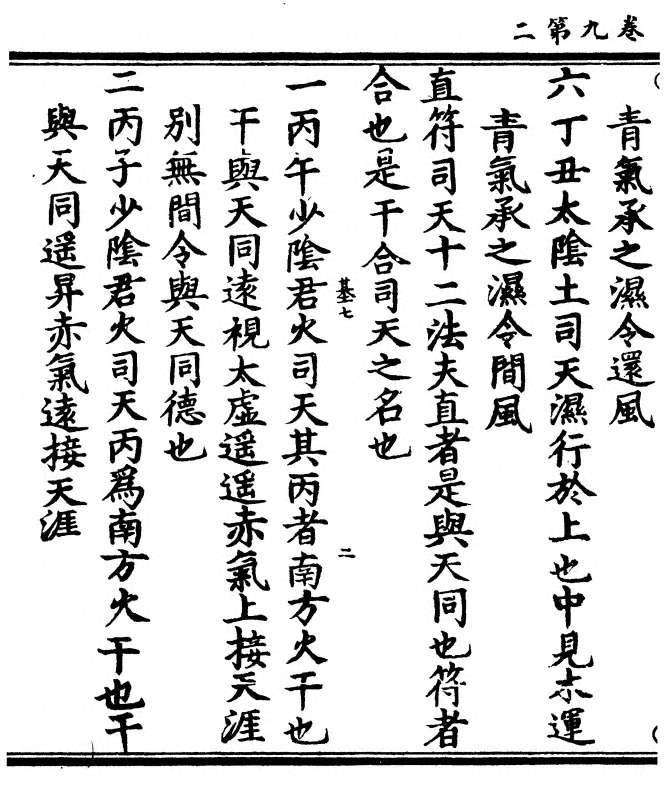 卷九第二
青氣承之濕令還風
六丁丑太陰土司天濕行於上也中見木運
青氣承之濕令間風
直符司天十二法夫直者是與天同也符者
合也是干合司天之名也
墓七
二
一丙午少陰君火司天其丙者南方火干也
干與天同遠視太虛遥遥赤氣上接天涯
別無間令與天同德也
二丙子少陰君火司天丙爲南方火干也干
與天同遥昇赤氣遠接天涯